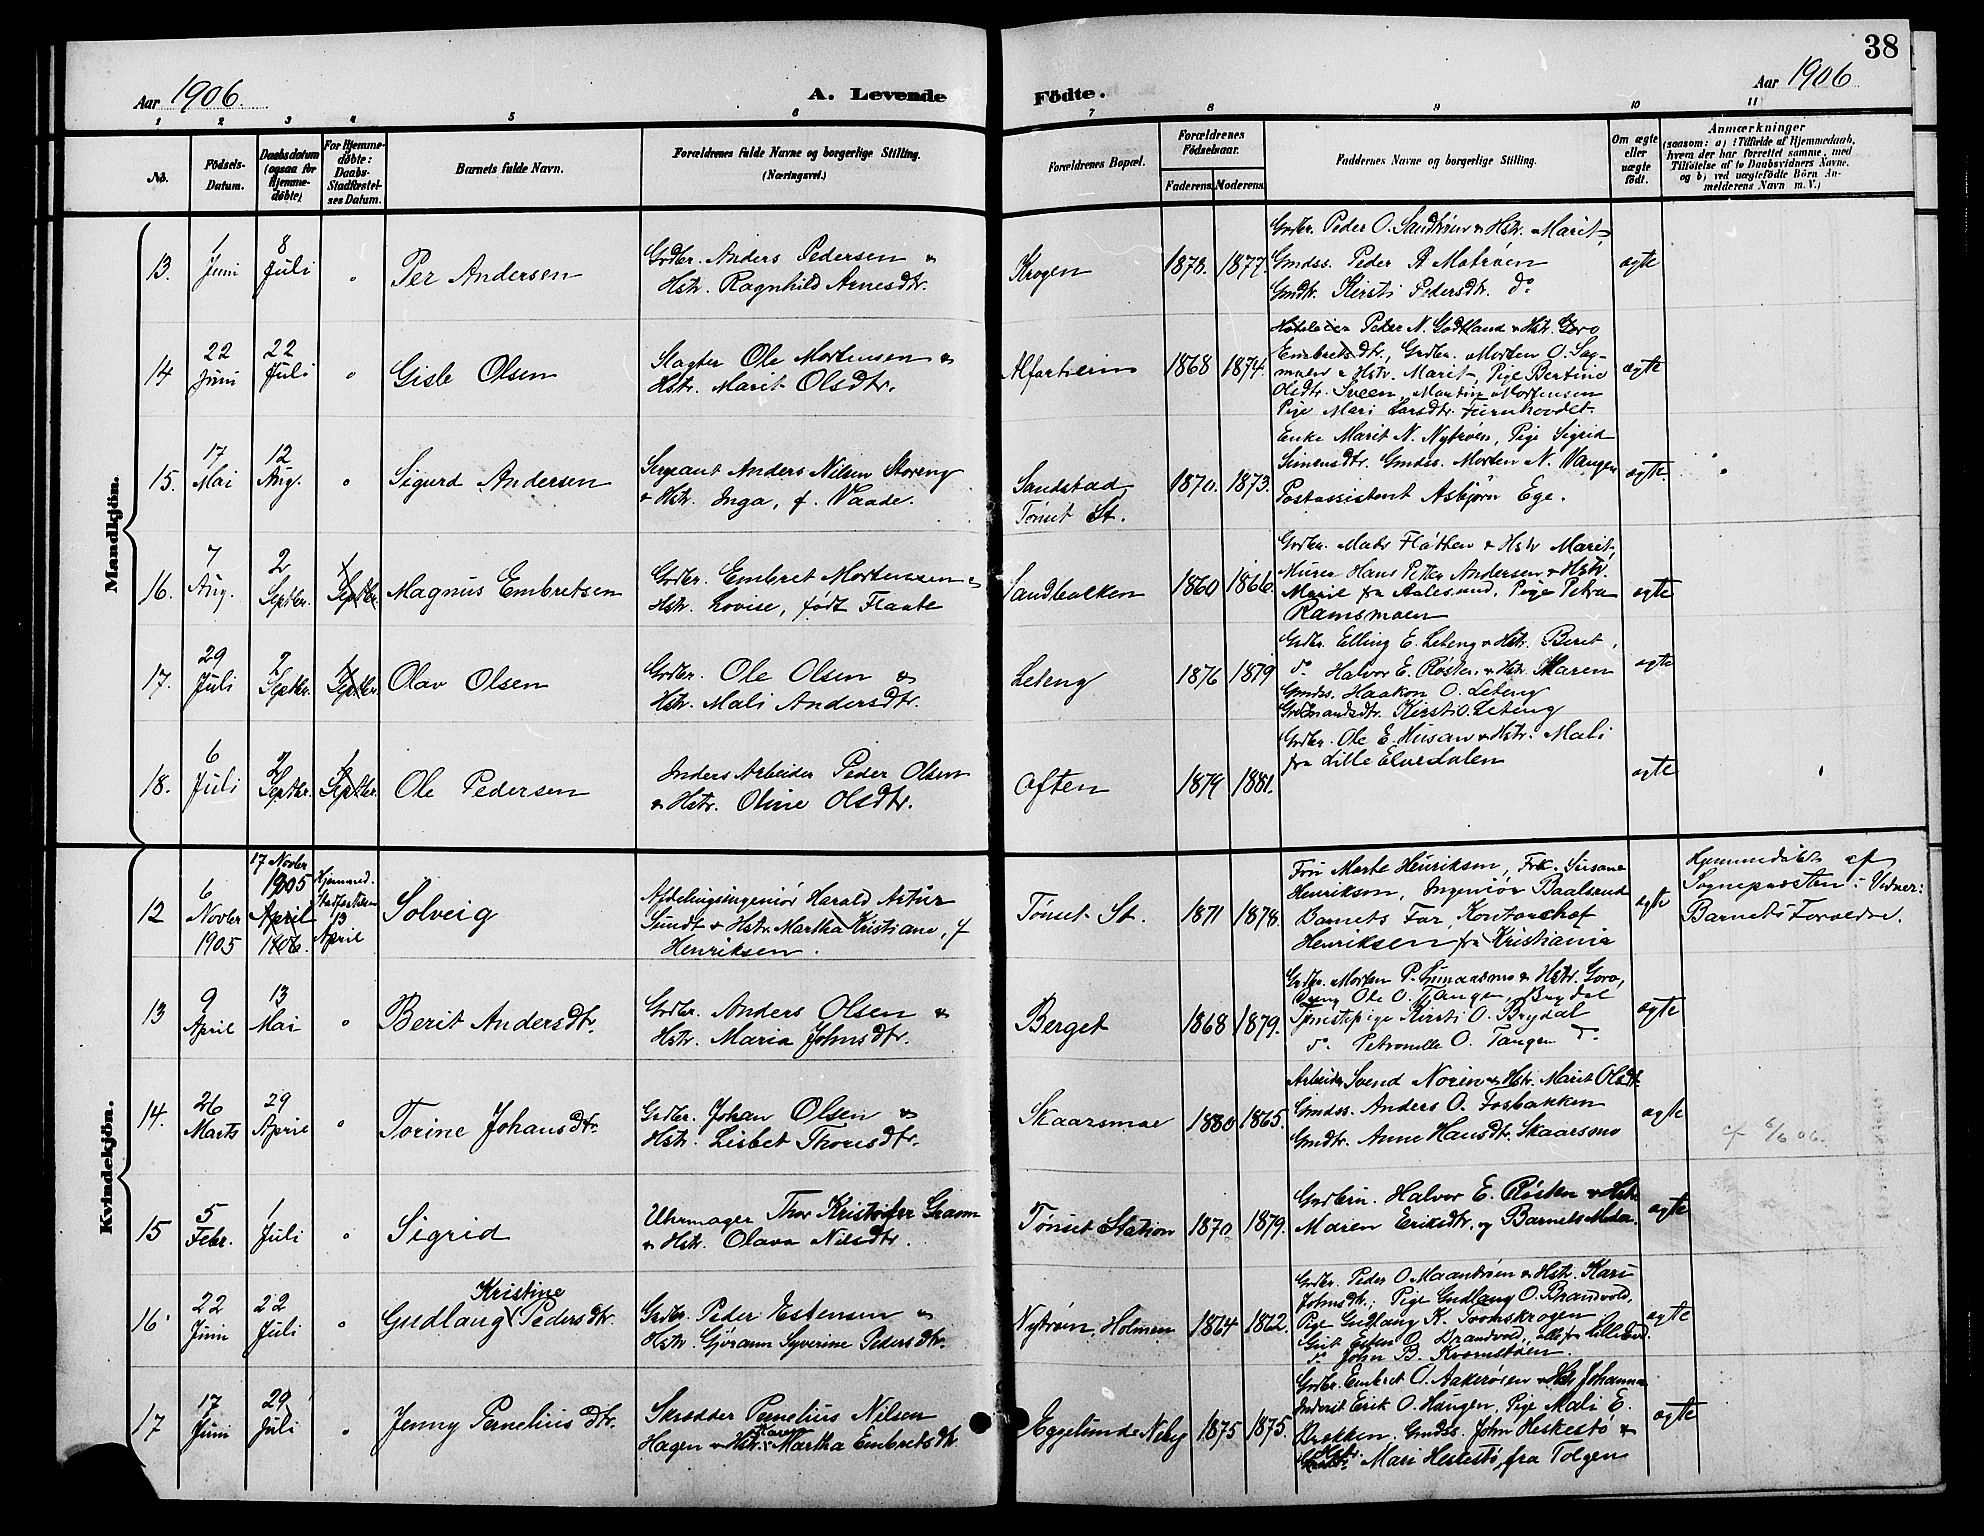 38
Aar 1906.
A. Levende
Födte.
Aar 1906
1 2 3 4 5 6 7 8 9 10 11
No.
Födsels-Datum.
Daabsdatum (ogsaa for Hjemmedøbte)
For Hjemmedøbte: Daabs-Stadfæstelses Datum.
Barnets fulde Navn.
Forældrenes fulde Navne og borgerlige Stilling.
(Næringsvei.)
Forældrenes Bopæl.
Forældrenes Födselsaar.
Faderens. Moderens.
Faddernes Navne og borgerlige Stilling.
Om ægte eller uægte födt.
Anmærkninger
(saasom: a) i Tilfælde af Hjemmedaab,
hvem der har forrettet samme, med
Tilføielse af to Daabsvidners Navne,
og b) ved uægtefödte Börn An-
melderens Navn m. V.)
Mandkjön.
13. 1 Juni 8 Juli " Per Andersen
Grdbr. Anders Pedersen &
Hstr. Ragnhild Arnesdtr.
Krogen 1878. 1877.
Grdbr. Peder O. Sandtrøen & Hstr. Marit,
Gmdss. Peder A Motrøen
Gmdtr. Kirsti Pedersdtr. do
ægte
14 22 Juni 22 Juli " Gisle Olsen
Slagter Ole Mortensen &
Hstr. Marit Olsdtr.
Alfarheim 1868 1874.
Peder N. Godtland & Hstr. Goro
Embretsdtr., Grdbr. Morten O. Sag-
moen & Hstr. Marit, Pige Bertine
Olsdtr. Sveen, Martin Mortensen
Pige Mari Larsdtr. Furuhovdet.
ægte
15. 17 Mai 12 Aug. " Sigurd Andersen
Sergeant Anders Nilsen Storeng
& Hstr. Inga, f. Vaade.
Sandstad, Tønset St. 1870. 1873.
Enke Marit N. Nytrøen, Pige Sigrid
Simensdtr. Gmdss. Morten N. Vangen
Postassistent Asbjørn Ege.
ægte.
16. 7 Aug. 2 Septbr. 1 Septbr. Magnus Embretsen
Grdbr. Embret Mortensen &
Hstr. Lovise, født Flaate
Sandbakken 1860 1866.
Grdbr. Mads Fløtten & Hstr Marit,
Murer Hans Petter Andersen & Hstr.
Marie fra Aalesund, Pige Petra
Ramsmoen
ægte
17. 29 Juli 2 Septbr. 1 Septbr. Olav Olsen
Grdbr. Ole Olsen &
Hstr. Mali Andersdtr.
Leteng 1876 1879
Grdbr. Elling E. Leteng & Hstr. Beret,
do Halvor E. Røsten & Hstr. Maren
Gmdss. Haakon O. Leteng
Kirsti O. Leteng
ægte
18. 6 Juli 2 Septbr. 1 Septbr. Ole Pedersen
Inders Arbeider Peder Olsen
& Hstr. Oline Olsdtr.
Aften 1879 1881.
Grdbr. Ole E. Husan & Hstr. Mali
fra Lille Elvedalen
ægte
Kvindekjön.
12 6 Novbr 1905 17 Novbr 1905 April 1906. Hjemmed. Stadfæstelsen 13 April Solveig
Afdelingsingeniør Harald Artur
Sundt & Hstr. Martha Kristiane, f
Henriksen.
Tønset St. 1871 1878.
Fru Marthe Henriksen, Frk. Susane
Henriksen, Ingeniør Baalsrud
Barnets Far, Kontorchef
Henriksen fra Kristiania
ægte
Hjemmedøbt af
Sognepresten: Vidner:
Barnets Forældre.
13 9 April 13 Mai " Berit Andersdtr.
Grdbr. Anders Olsen &
Hstr. Maria Johnsdtr.
Berget 1868 1879.
Grdbr. Morten P. Gunaasmo & Hstr. Goro,
Dreng Ole O. Tangen, Brydal
Tjenestepige Kirsti O. Brydal
do Petronelle O. Tangen do
ægte
14. 26 Marts 29 April " Torine Johansdtr.
Grdbr. Johan Olsen &
Hstr. Lisbet Thorsdtr.
Skaarsmoe 1880 1865.
Arbeider Svend Noren & Hstr. Marit Olsdtr
Gmdss. Anders O. Fosbakken
Gmdtr. Anne Hansdtr. Skaarsmo
ægte
f 6/6 06.
15 5 Febr. 1 Juli " Sigrid
Uhrmager Thor Kristofer Gram
& Hstr. Olava Nilsdtr.
Tønset Station 1870 1879.
Halvor E. Røsten & Hstr
Maren Eriksdtr. og Barnets Moder.
ægte
16 22 Juni 22 Juli " Gudlaug Kristine Pedersdtr.
Grdbr. Peder Estensen &
Hstr. Gjørann Syverine Pedersdtr.
Nytrøen, Holmen 1864 1862.
Grdbr. Peder O Maantrøen & Hstr. Kari
Johnsdtr.; Pige Gudlaug O. Brandvold,
Pige Gudlaug K. Tvomskrogen
Gut Esten O. Brandvold, alle fra Lilleelvd.
do John B. Kvernstøen.
ægte
17 17 Juni 29 Juli " Jenny Perneliusdtr.
Skrædder Pernelius Nilsen
Hagen & Hstr. Karen Martha Embretsdtr
Eggelunde Neby 1875 1875.
Grdbr. Embret O. Aakerøien & Hstr Johanna
Erik O. Haugen, Pige Mali E.
Brekken. Gmdss. John Heskestø &
Hstr. Mari Heskestø, fra Tolgen
ægte